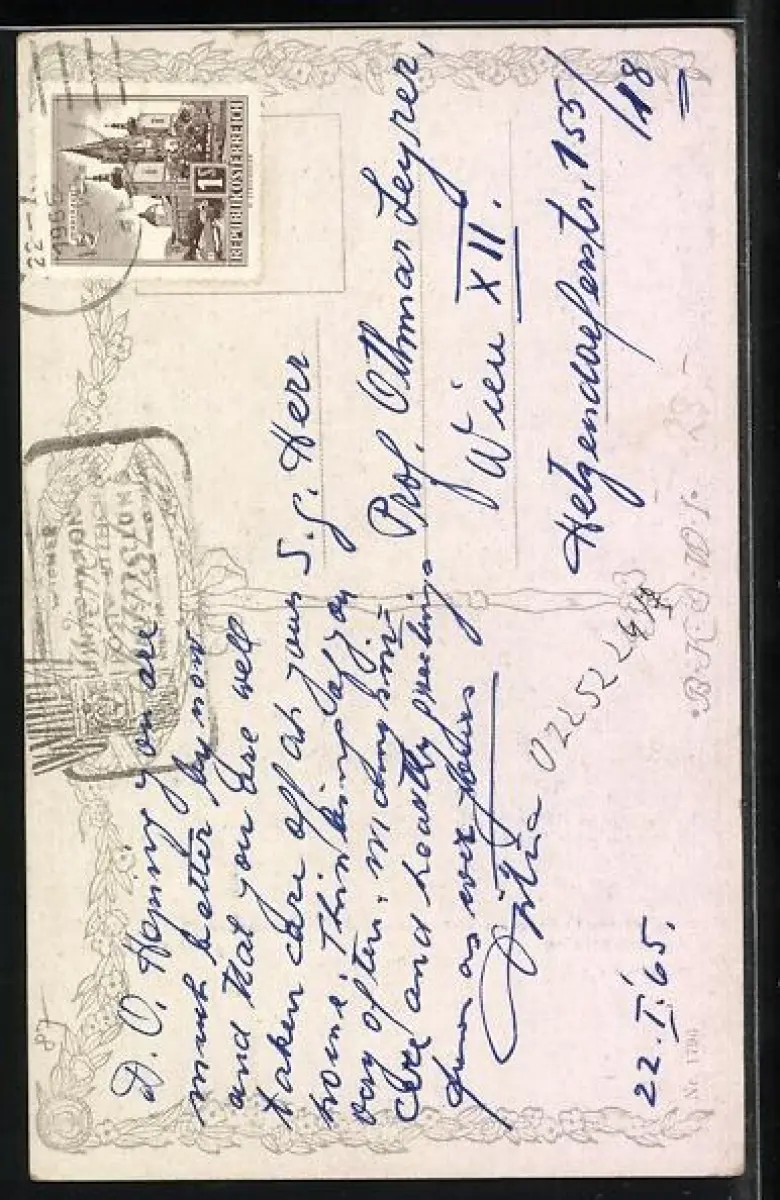 D. O. Hoping you are
much better by now
and that you are well
taken care off at your
home. Thinking of you
very often. Many
care and hearty greetings
as ever yours
22. I. '65.
S. g. Herr
Prof. Othmar Leyrer,
Wien XII.
Hetzendorferstr. 155/
18
REPUBLIK ÖSTERREICH
1S
22-1.
1965
WIENER
B.K.W.I.
Nr. 1790
87